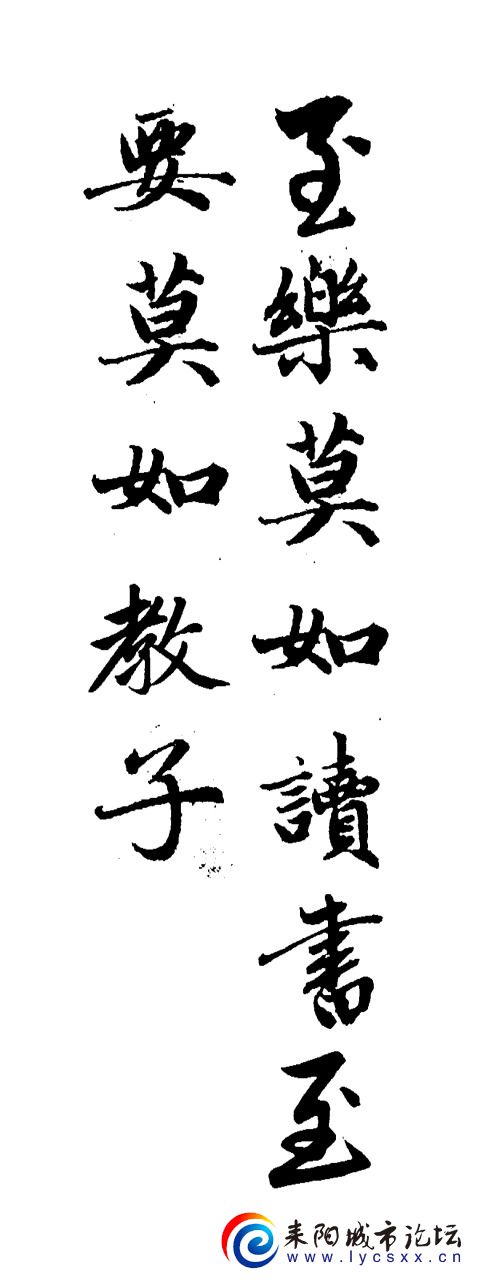 至樂莫如讀書至
要莫如教子
耒阳城市论坛
www.lycsxx.cn